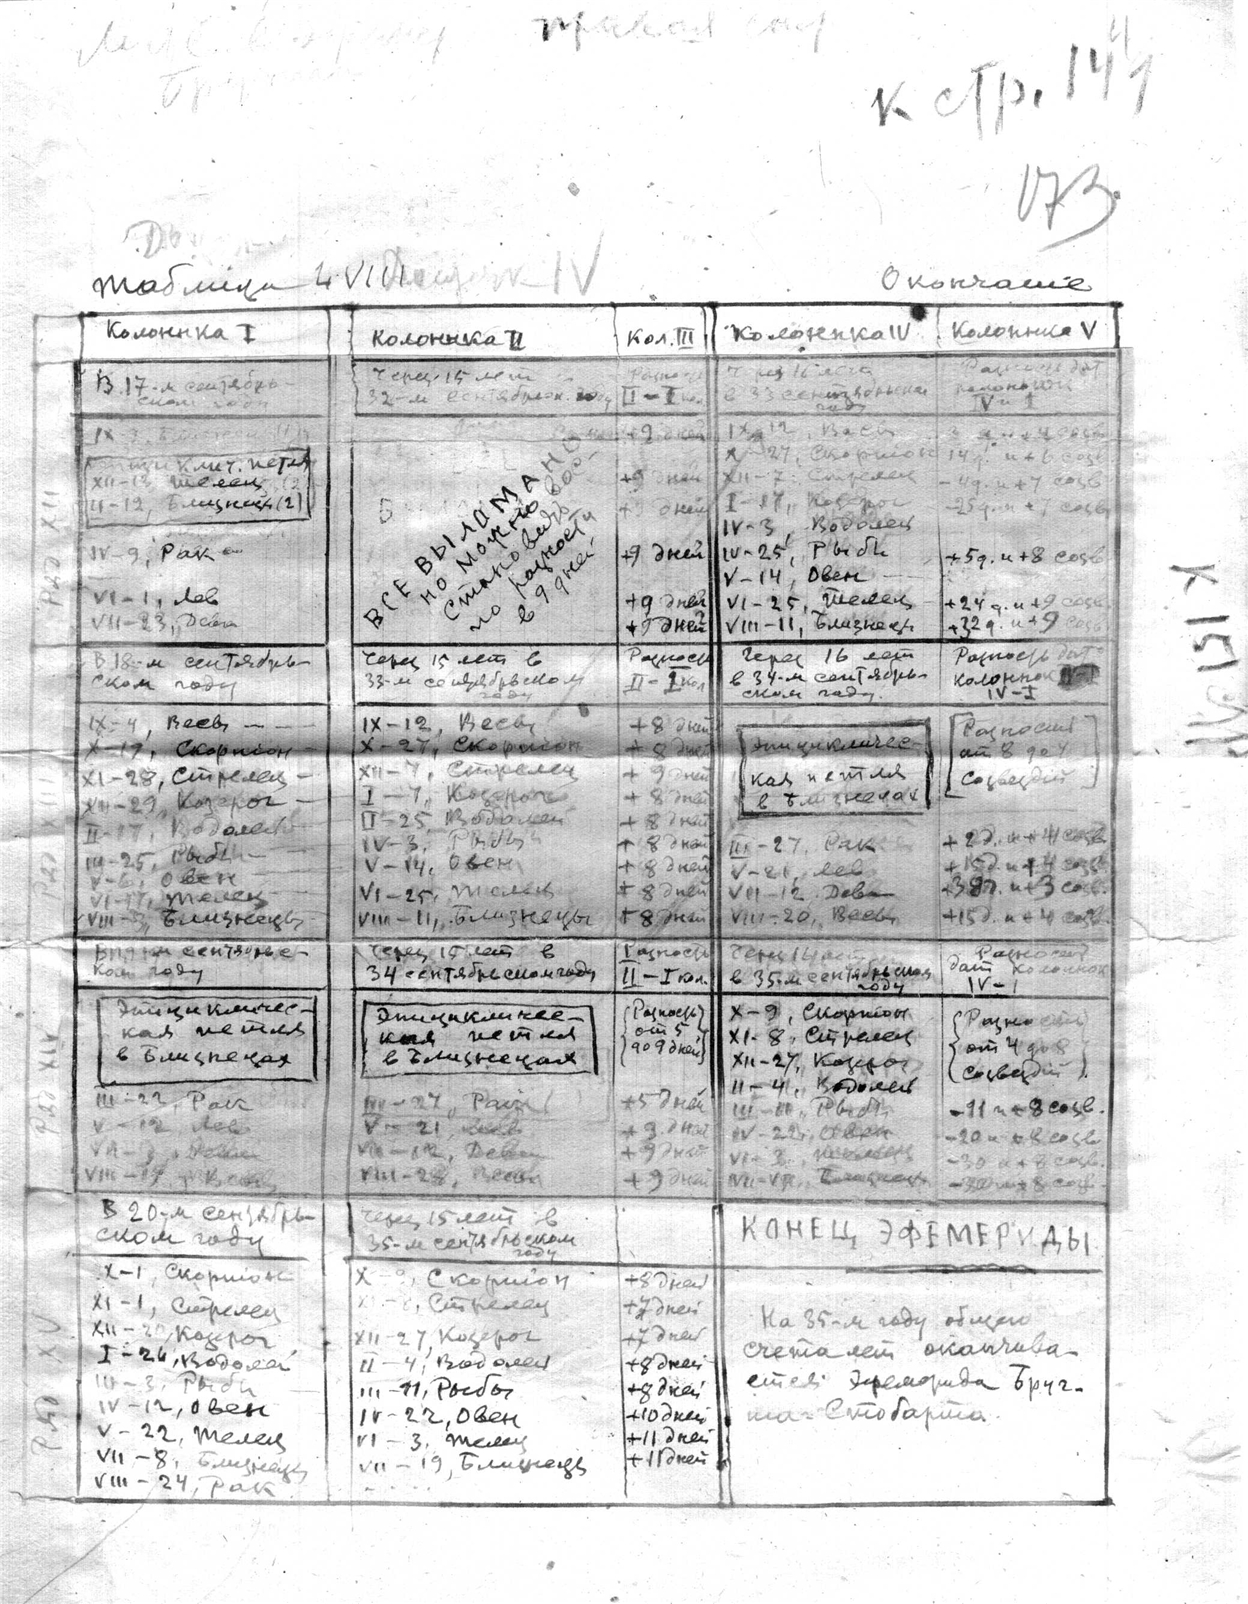 правая стр
к стр. 144
173
Таблица LVIII
IV
Окончание
Колонка I
Колонка II
Кол. III
Колонка IV
Колонка V
В 17-м сентябрь-
ском году
Через 15 лет
32-м сентябрьск. году
Разность
II – I кол.
в 33 сентябрьском
году
Разность дат
колонок
IV и I
эпициклич. петля
XII–13, Телец (2)
II–12, Близнецы (2)
IV–9, Рак
VI–1, Лев
VII–23, Дева
ВСЕ ВЫЛОМАНО
НО МОЖНО ВОС-
становить
по разности
в 9 дней
+9 дней
+9 дней
+9 дней
+9 дней
+9 дней
+9 дней
IX–12, Весы
X–27, Скорпион
XII–7, Стрелец
I–17, Козерог
IV–3, Водолей
IV–25, Рыбы
V–14, Овен
VI–25, Телец
VIII–11, Близнецы
+5 д. и +8 созв.
+24 д. и +9 созв.
+32 д. и +9 созв.
РЯД XII
В 18-м сентябрь-
ском году
Через 15 лет в
33-м сентябрьском
году
Разность
II – I кол.
Через 16 лет
в 34-м сентябрь-
ском году.
Разность дат
колонок
IV–I
IX–4, Весы
X–19, Скорпион
XI–28, Стрелец
XII–29, Козерог
II–17, Водолей
III–25, Рыбы
V–6, Овен
VI–17, Телец
VIII–3, Близнецы
IX–12, Весы
X–27, Скорпион
XII–7, Стрелец
I–7, Козерог
II–25, Водолей
IV–3, Рыбы
V–14, Овен
VI–25, Телец
VIII–11, Близнецы
+8 дней
+8 дней
+9 дней
+8 дней
+8 дней
+8 дней
+8 дней
+8 дней
+8 дней
эпицикличес-
кая петля
в Близнецах
III–27, Рак
V–21, Лев
VII–12 Дева
VIII–20, Весы
Разности
от 8 до 4
созвездий
+2 д. и +4 созв.
+15 д. и +4 созв.
+39 д. и +3 созв.
+15 д. и +4 созв.
РЯД XIII
В 19-м сентябрьс-
ком году
Через 15 лет в
34 сентябрьском году
Разность
II – I кол.
Через 16 лет
в 35-м сентябрьском
году
Разности
дат колонок
IV–I
Эпицикличес-
кая петля
в Близнецах
III–22, Рак
V–12 Лев
VII–3, Дева
VIII–19, Весы
Эпицикличес-
кая петля
в Близнецах
III–27, Рак
V–21, Лев
VII–12, Дева
VIII–28, Весы
Разность
от 5
до 9 дней
+5 дней
+9 дней
+9 дней
+9 дней
X–9, Скорпион
XI–8, Стрелец
XII–27, Козерог
II–4, Водолей
III–11, Рыбы
IV–22, Овен
VI–3, Телец
Близнецы
Разность
от 4 до 8
созвездий
–11 и +8 созв.
–20 и +8 созв.
–30 и +8 созв.
–30 и +8 созв.
РЯД XIV
В 20-м сентябрь-
ском году
Через 15 лет в
35-м сентябрьском
году
КОНЕЦ ЭФЕМЕРИДЫ
X–1, Скорпион
XI–1, Стрелец
XII–20, Козерог
I–26, Водолей
III–3, Рыбы
IV–12, Овен
V–22, Телец
VII–8, Близнецы
VIII–24, Рак
X–9, Скорпион
XI–8, Стрелец
XII–27, Козерог
II–4, Водолей
III–11, Рыбы
IV–22, Овен
VI–3, Телец
VII–19, Близнецы
+8 дней
+7 дней
+7 дней
+8 дней
+8 дней
+10 дней
+11 дней
+11 дней
На 35-м году общего
счета лет оканчива-
ется эфемерида Бруг-
ша-Стобарта.
РЯД XV